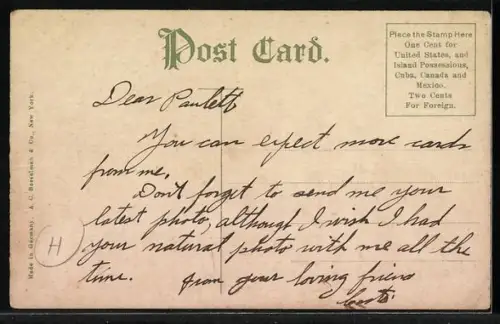 Post Card.
Place the Stamp Here
One Cent for
United States, and
Island Possessions,
Cuba, Canada and
Mexico.
Two Cents
For Foreign.
Dear Paulett
You can expect more cards
from me,
Dont forget to send me your
latest photo, although I wish I had
your natural photo with me all the
time. from your loving friend
Made in Germany. A. C. Bosselman & Co., New York.
H